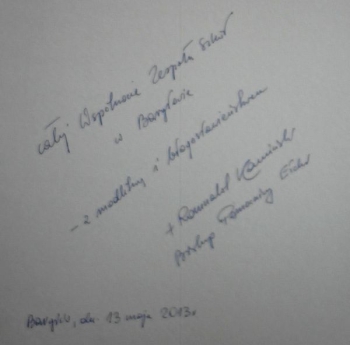 całej Wspólnocie Zespołu Szkół
w Bargłowie
- z modlitwą i błogosławieństwem
+ Romuald Kamiński
Biskup Pomocniczy Ełcki
Bargłów, dn. 13 maja 2013 r